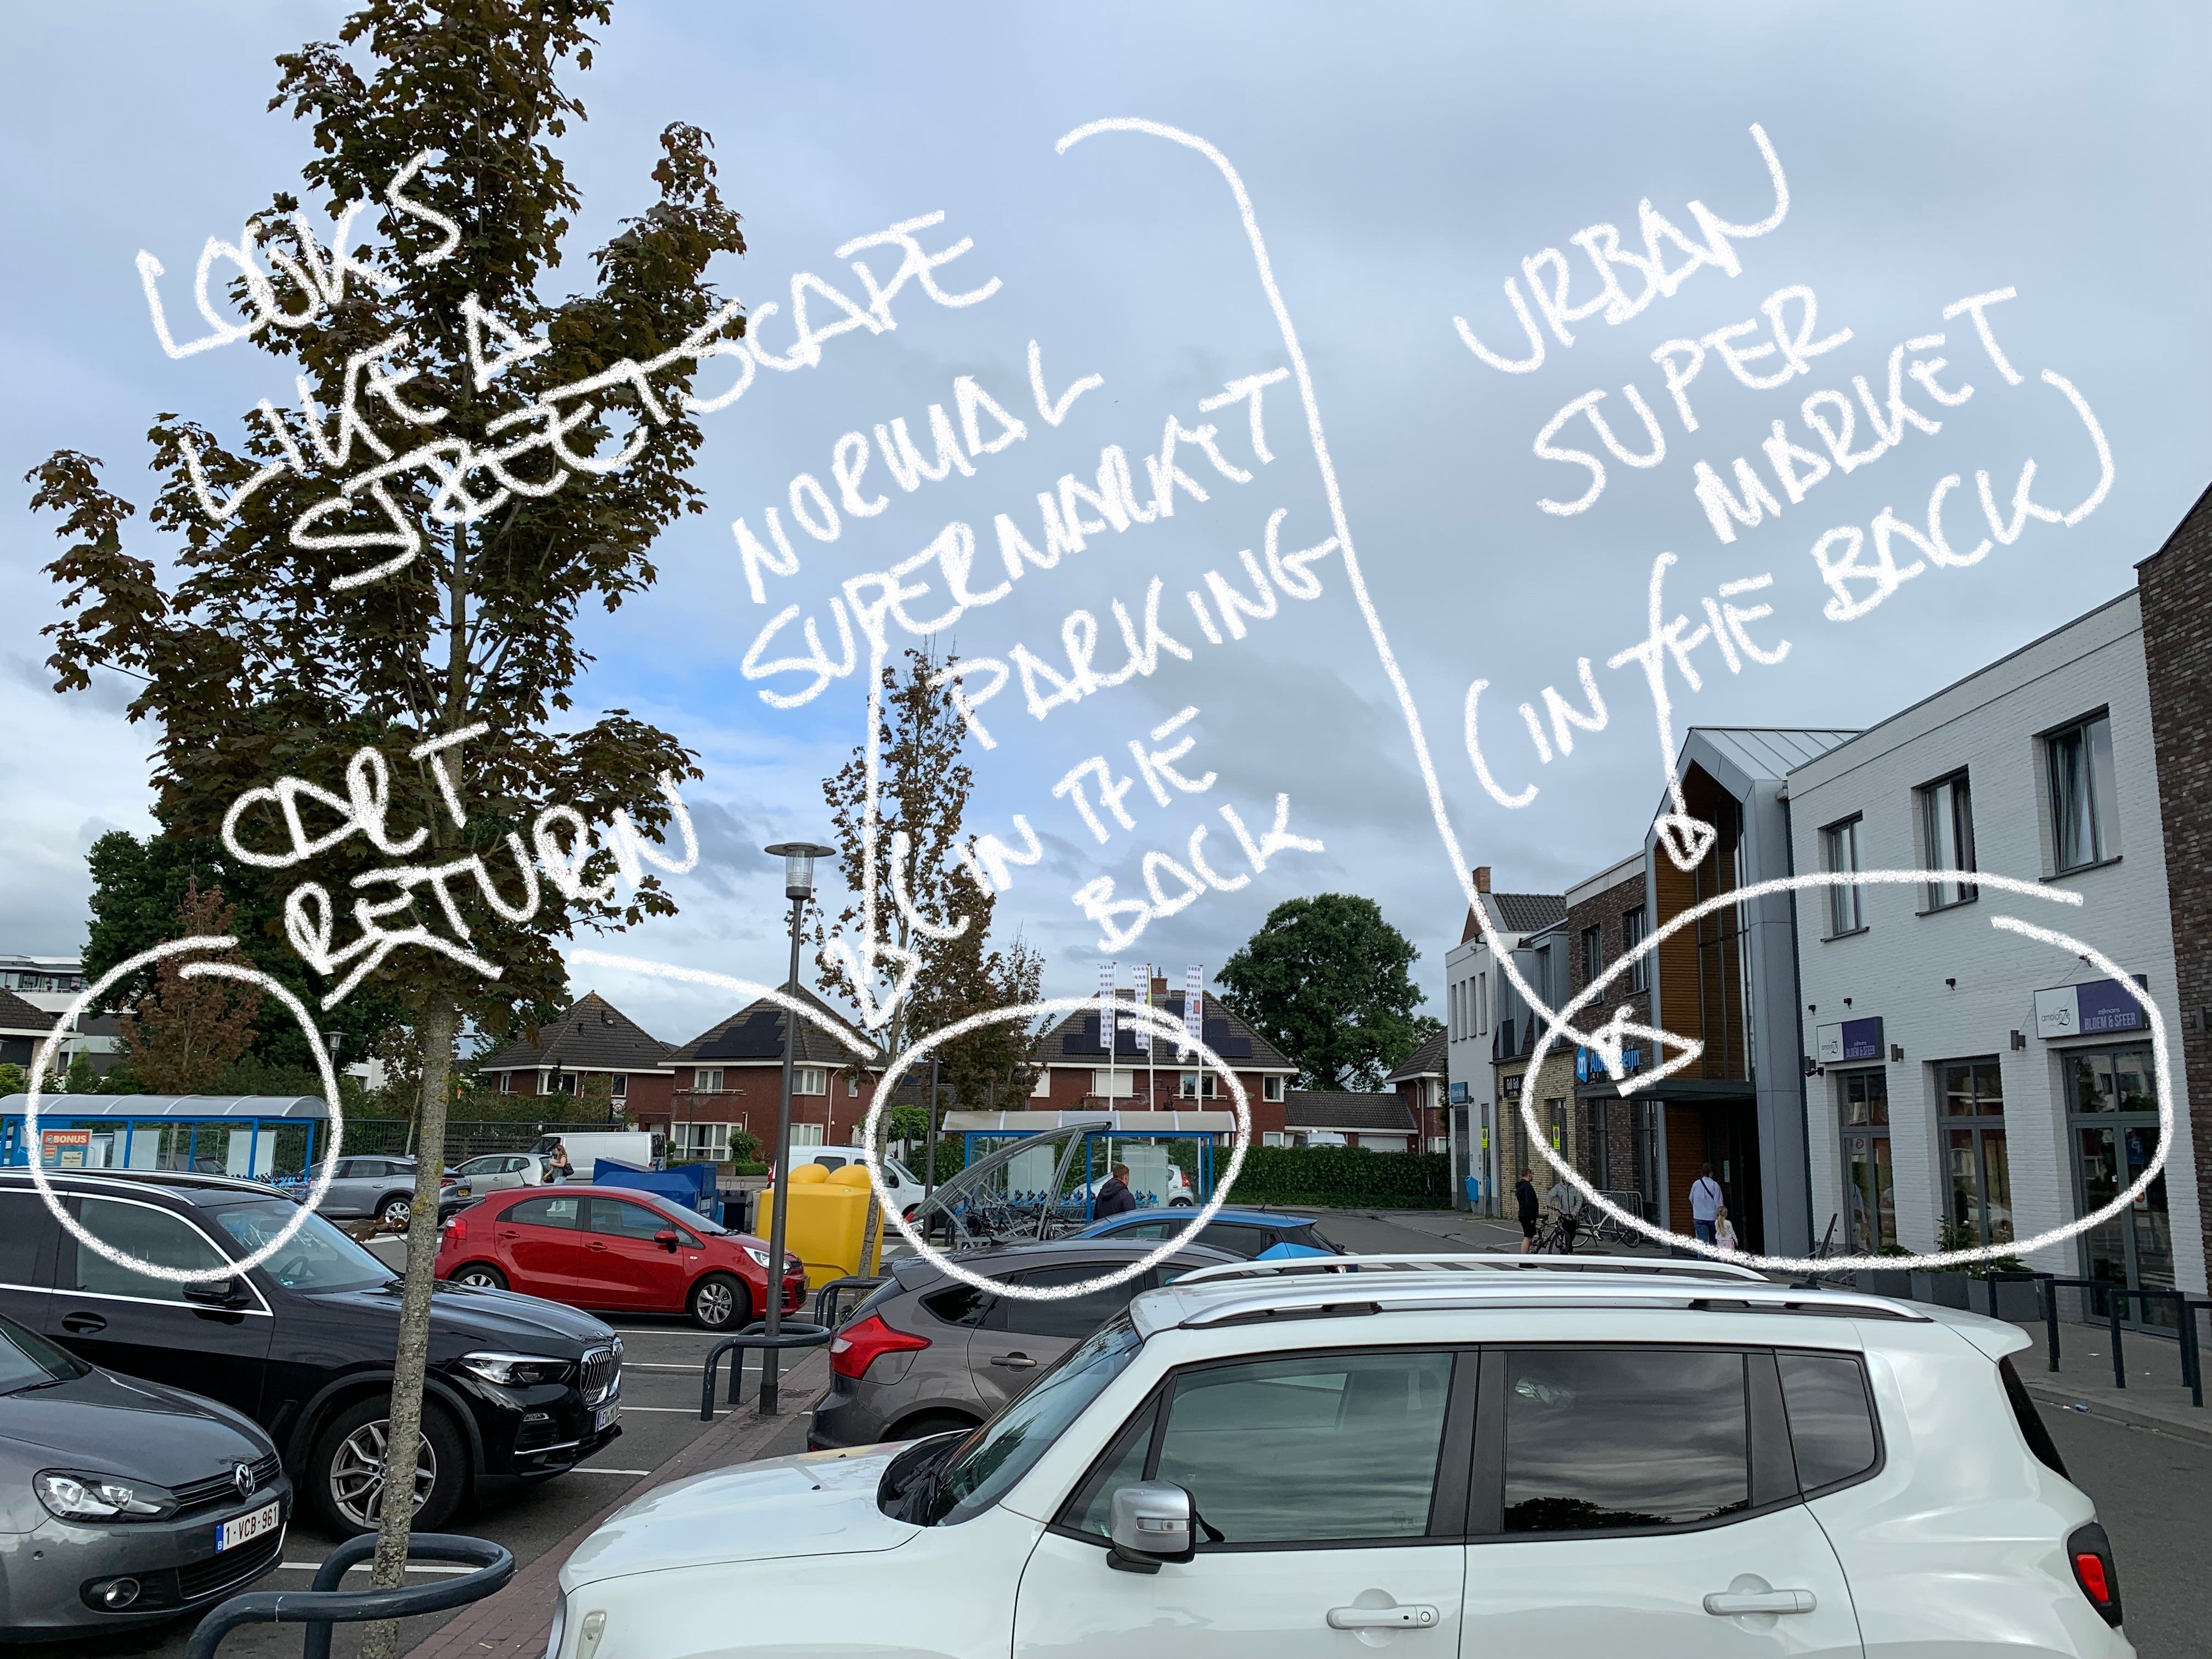 LOOKS
LIKE A
STREETSCAPE
NORMAL
SUPERMARKT
PARKING
(IN THE
BACK
URBAN
SUPER
MARKET
(IN THE BACK)
CART
RETURN
BONUS
ambianZs
BLOEM & SFEER
BLOEM & SFEER
1-VCB-961